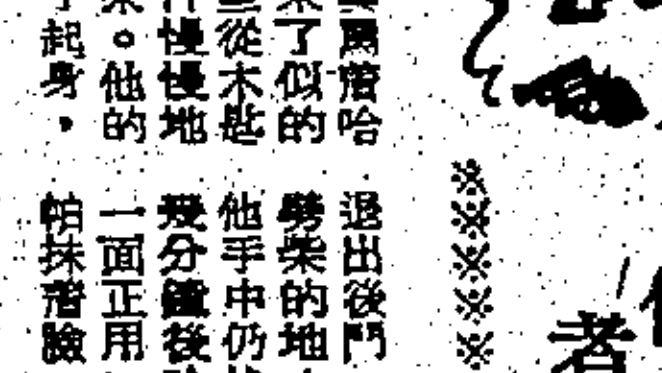 者
※※※※※
着哈
了似的
從木匙
慢慢地
。他的
起身，
退出後門
劈柴的地
他手中仍
幾分鐘後
一面正用
帕抹着臉